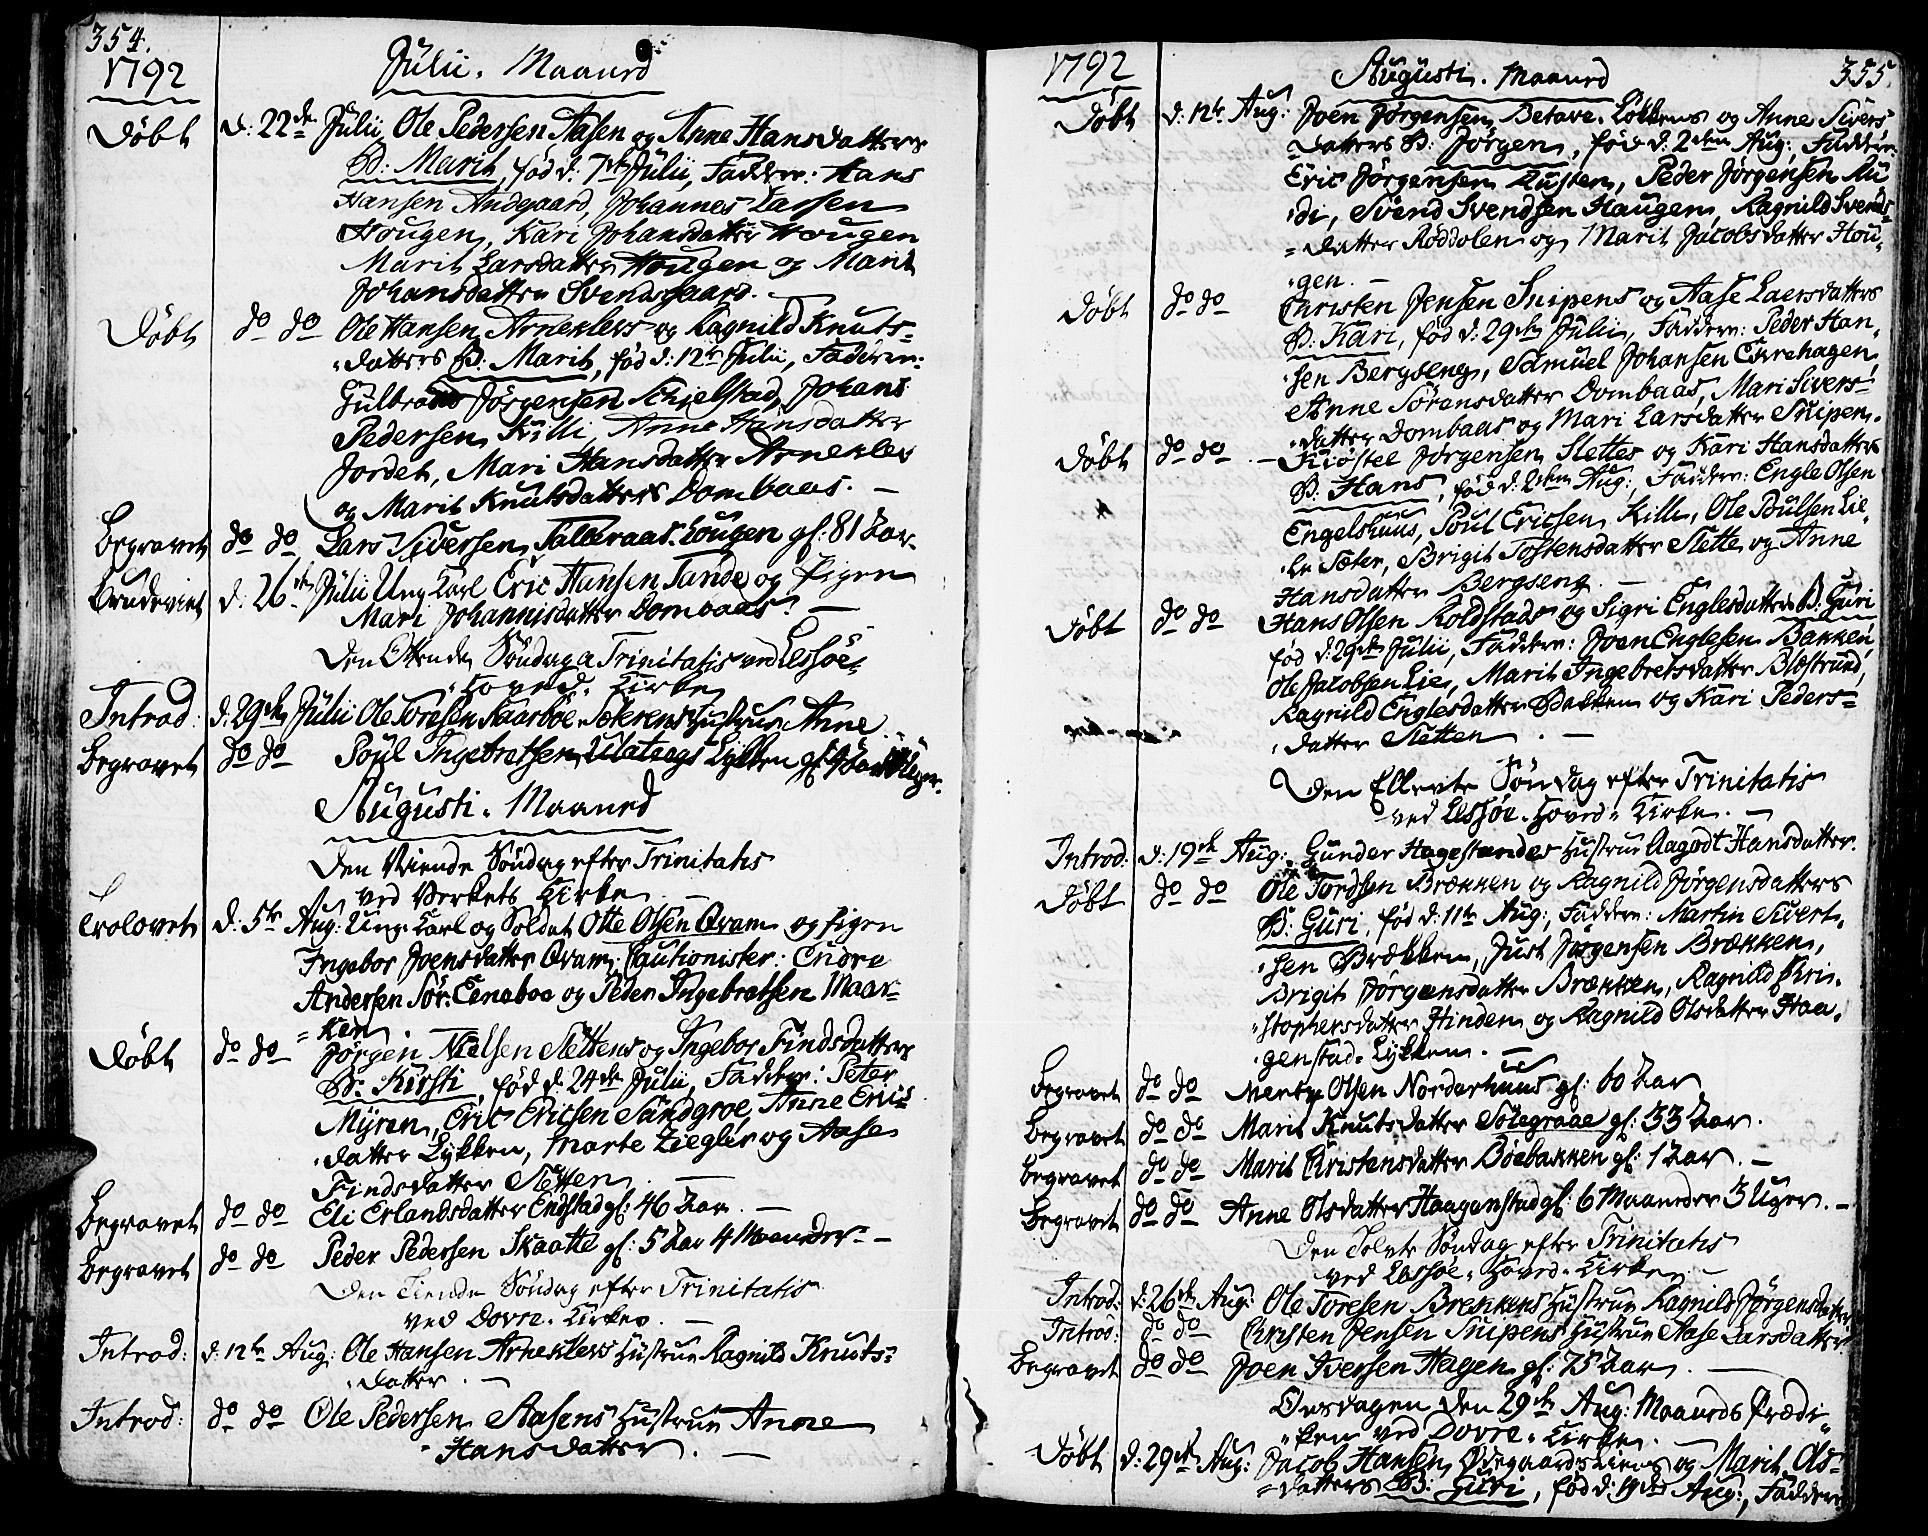 354.
1792
Julii. Maaned
Døbt d: 22de Julii Ole Pedersen Aasen og Anne Hansdatters
B: Marit, fød d: 7de Julii, Faddere: Hans
Hansen Andgaard, Johannes Larsen
Hougen, Kari Johansdatter Hougen
Marit Larsdatter Hougen og Marit
Johansdatter Svendsgaard.
Døbt do do Ole Hansen Arneklevs og Ragnild Knuts-
datters B: Marit, fød d: 12te Julii, Faddere:
Gulbrand Jørgensen Schielstad, Johans
Pedersen Killi, Anne Hansdatter
Jordet, Mari Hansdatter Arneklev
og Marit Knutsdatters Dombaas. —
Begravet do do Lars Siversen Hougen gl: 81 Aar.
Brudeviet d: 26de Julii Ung Karl Eric Hansen Tande og Pigen
Mari Johannisdatter Dombaas. —
Den Ottende Søndag a Trinitatis ved Lessøe-
Hoved-Kirke
Introd: d: 29de Julii Ole Toresen Hustrue Anne
Begravet do do Poul Ingebretsen Lykken gl:
Augusti. Maaned
Den Niende Søndag efter Trinitatis
ved Verkets Kirke —
Trolovet d: 5te Aug: Ung Karl og Soldat Otte Olsen Qvam og Pigen
Ingebor Joensdatter Qvam, Cautionister: Endre
Andersen Sør-Eeneboe og Peder Ingebretsen Maar-
ken
Døbt do do Jørgen Nielsen Slettens og Ingebor Findsdatters
B: Kirsti, fød d. 24de Julii, Faddere: Peter
Myren, Eric Ericsen Sandgroe, Anne Erics-
datter Lykken, Marte Ziegler og Aase
Findsdatter Sletten. —
Begravet do do Eli Erlandsdatter Endstad gl: 46 Aar. —
Begravet do do Peder Pedersen Skaatte gl: 5 Aar 4 Maaneder. —
Den Tiende Søndag efter Trinitatis
ved Dovre-Kirke. —
Introd: d: 12te Aug: Ole Hansen Arneklevs Hustrue Ragnild Knuts-
datter. —
Introd: do do Ole Pedersen Aasens Hustrue Anne
Hansdatter. —
1792
Augusti. Maaned
355.
Døbt d: 12te Aug: Joen Jørgensen Løkkens og Anne Sivers-
datters B: Jørgen, fød d: 2den Aug:, Faddere:
Eric Jørgensen Rusten, Peder Jørgensen Ru-
di, Svend Svendsen Haugen, Ragnild Svends-
datter Røddolen og Marit Jacobsdatter Hou-
gen. —
Døbt do do Christen Jensen Snipens og Aase Laersdatters
B: Kari, fød d: 29de Julii, Faddere: Peder Han-
sen Bergseng, Samuel Johansen Enrehagen
Anne Sørensdatter Dombaas, Mari Sivers-
datter Dombaas og Mari Larsdatter Snipen.
Døbt do do — Kiøstel Jørgensen Slettes og Kari Hansdatters
B: Hans, fød d. 2den Aug:, Faddere: Engle Olsen
Engelshuus, Poul Ericsen Kille, Ole Poulsen Lie-
Sæter, Brigit Tostensdatter Slette og Anne
Hansdatter Bergseng. —
Døbt do do Hans Olsen Koldstads og Sigri Englesdatters B: Guri
fød d: 29de Julii, Faddere: Joen Englesen Bakken,
Ole Jacobsen Lie, Marit Ingebretsdatter Blostrund,
Ragnild Englesdatter Bakken og Kari Peders-
datter Sletten. —
Den Ellevte Søndag efter Trinitatis
ved Lessøe-Hoved-Kirke. —
Introd: d: 19de Aug: Gunder Hagestandes Hustrue Aagodt Hansdatter.
Døbt do do Ole Tordsen Brækken og Ragnild Jørgensdatters
B: Guri, fød d: 11te Aug:, Faddere: Martin Sivert-
sen Brækken, Just Jørgensen Brækken,
Brigit Jørgensdatter Brækken, Ragnild Kri-
stophersdatter Hinden og Ragnild Olsdatter Haa-
genstad-Lykken. —
Begravet do do Olsen Norderhuus gl: 60 Aar
Begravet do do Marit Knutsdatter Solegraae gl: 33 Aar.
Begravet do do Marit Kristensdatter Bøebakken gl: 1 Aar. —
Begravet do do Anne Olsdatter Haagenstad gl: 6 Maaneder 3 Uger. —
Den Tolvte Søndag efter Trinitatis
ved Lessøe-Hoved-Kirke. —
Introd: d: 26de Aug: Ole Toresen Brekkens Hustrue Ragnild Jørgensdatter
Introd: do do Christen Jensen Snipens Hustrue Aase Larsdatter
Begravet do do Joen Iversen Helgen gl: 75 Aar. —
Onsdagen den 29de Aug: Maaneds Prædi-
ken ved Dovre-Kirke. —
Døbt d: 29de Aug: Jacob Hansen Ødegaardsliens og Marit Ols-
datters B: Guri, fød d: 19de Aug:, Faddere